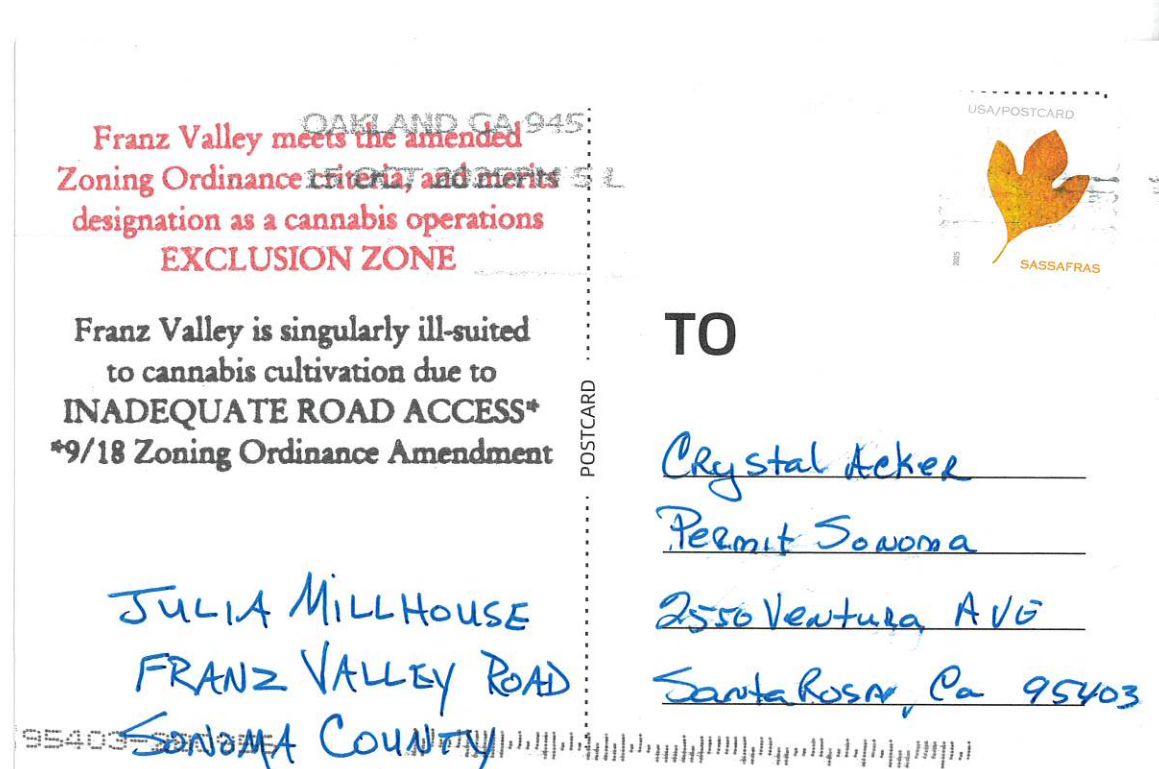 OAKLAND CA 945
15 OCT 2025 PM 5 L
Franz Valley meets the amended
Zoning Ordinance criteria, and merits
designation as a cannabis operations
EXCLUSION ZONE
Franz Valley is singularly ill-suited
to cannabis cultivation due to
INADEQUATE ROAD ACCESS*
*9/18 Zoning Ordinance Amendment
JULIA MILLHOUSE
FRANZ VALLEY ROAD
SONOMA COUNTY
POSTCARD
USA/POSTCARD
2025
SASSAFRAS
TO
Crystal Acker
Permit Sonoma
2550 Ventura AVE
Santa Rosa, Ca 95403
95403